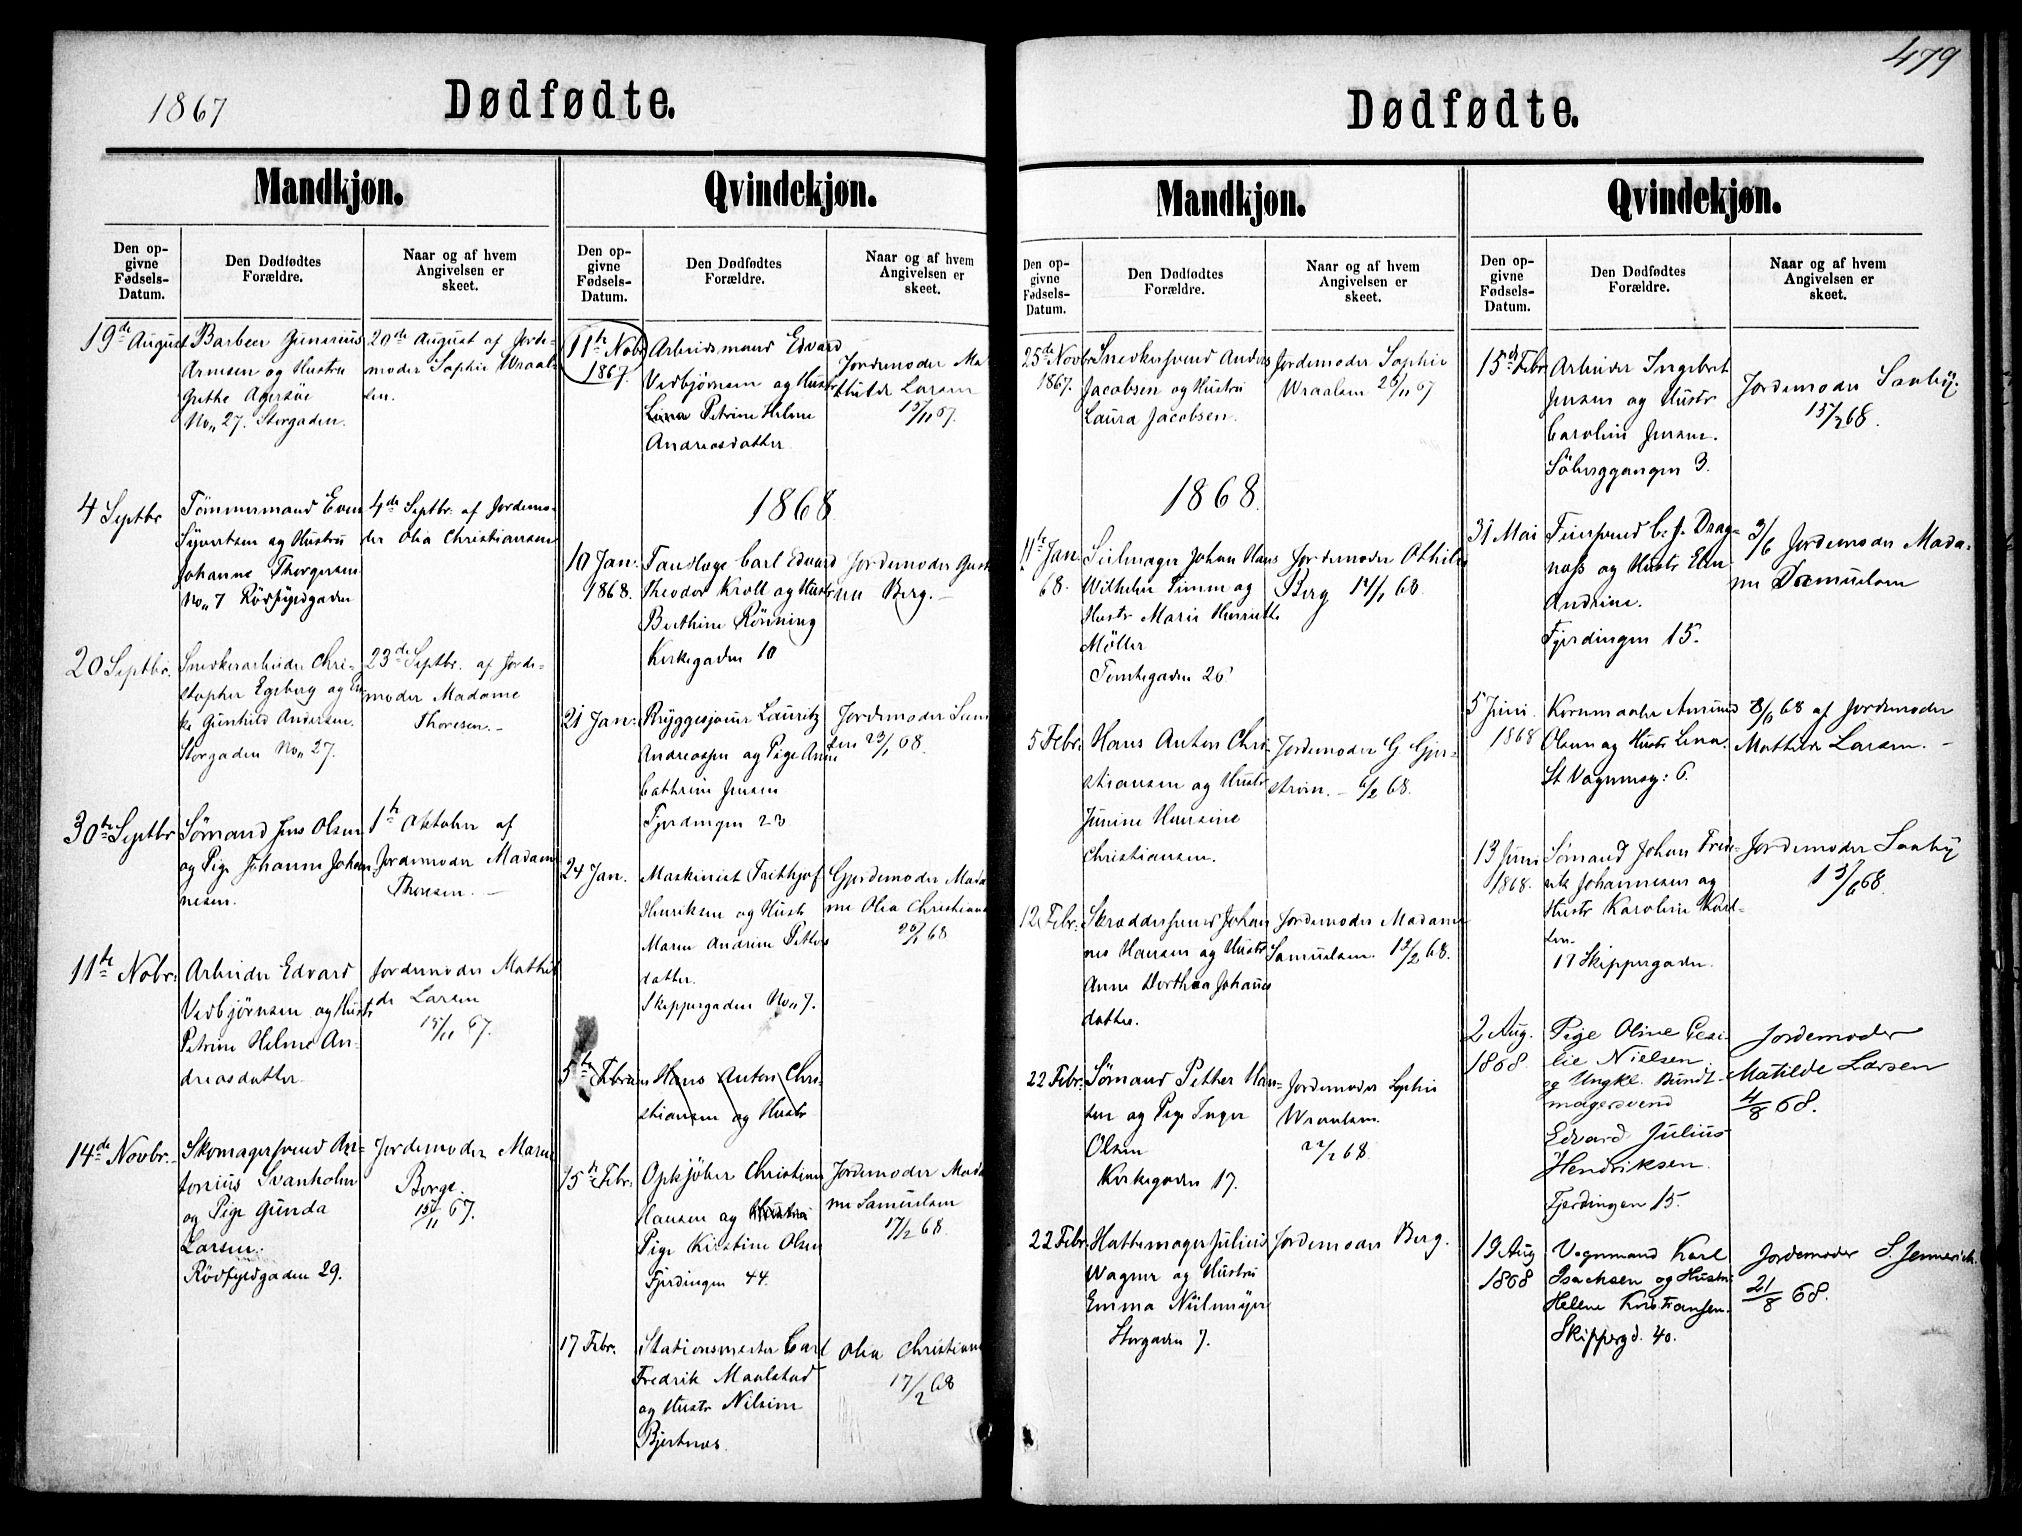 1867
Dødfødte.
Mandkjøn.
Den op-
givne
Fødsels-
Datum.
Den Dødfødtes
Forældre.
Naar og af hvem
Angivelsen er
skeet.
19de August
Barbeer Gunerius
Arnesen og Hustru
Grethe Agersøe
No 27. Storgaden.
20de August af Jorde-
moder Sophie Wraal-
sen.
4 Septbr
Tømmermand Even
Syvertsen og Hustru
Johanne Thorgersen
No 7 Rødfyldgaden
4de Septbr. af Jordemo-
der Olia Christiansen
20 Septbr.
Snedkerarbeider Chri-
stopher Egeberg og En-
ke Gunhild Andersen.
Storgaden No 27.
23de Septbr. af Jorde-
moder Madame
Thoresen.-
30te Septbr
Sømand Jens Olsen
og Pige Johanne Johan-
nesen.
1te Oktober af
Jordemoder Madame
Thoresen. -
11te Nobr.
Arbeider Edvard
Vedbjørnsen og Hustr
Petrine Helene An-
dreasdatter.
Jordemoder Mathil
de Larsen
15/11 67.
14de Novbr.
Skomagersvend An-
tonius Svanholm
og Pige Gunda
Larsen.
Rødfyldgaden 29.
Jordemoder Maren
Borge.
15/11 67.
Qvindekjøn.
Den op-
givne
Fødsels-
Datum.
Den Dødfødtes
Forældre.
Naar og af hvem
Angivelsen er
skeet.
11te Nobr
1867.
Arbeidsmand Edvard
Vedbjørnsen og Hustr
Lena Petrine Helene
Andreasdatter
Jordemoder Ma
thilde Larsen
15/11 67.
1868
10 Jan.
1868.
Tandlæge Carl Edvard
Theodor Kroll og Hustr
Berthine Rönning
Kirkegaden 10
Jordemoder Gusta
va Berg. -
21 Jan.
Ryggesjouer Lauritz
Andreassen og Pige Anne
Cathrine Jensen
Fjerdingen 23
Jordemoder Sam
sen 23/1 68.
24 Jan.
Maskinist Frithjof
Henriksen og Hustr
Maren Andrine Petters
datter.
Skippergaden No 7.
Gjordemoder Mada
me Olia Christians
26/1 68
5te Februar
Hans Anton Chri-
stiansen og Hustr
15de Febr.
Opkjöber Christian
Hansen og Hustru
Pige Kirstine Olsen
Fjerdingen 44.
Jordemoder Mada
me Samuelsen
17/2 68
17 Febr.
Stationsmester Carl
Fredrik Maalstad
og Hustr Nilsine
Bjertnæs.
Olia Christians
17/2 68
479
Dødfødte.
Mandkjøn.
Den op-
givne
Fødsels-
Datum.
Den Dødfødtes
Forældre.
Naar og af hvem
Angivelsen er
skeet.
25de Novbr
1867.
Snedkersvend Anders
Jacobsen og Hustru
Laura Jacobsen.
Jordemoder Sophie
Wraalsen 26/11 67
1868.
11te Jan
68.
Seilmager Johan Hans
Wilhelm Timm og
Hustr Marie Henriette
Møller
Tomtegaden 26
Jordemoder Othilie
Berg 12/1 68
5 Febr.
Hans Anton Chri-
stiansen og Hustr
Junine Hansine
Christiansen.
Jordemoder G Gjer-
strøm. - 6/2 68.
12 Febr.
Skræddersvend Johan
nes Hansen og Hustr
Anne Dorthea Johannes
datter.
Jordemoder Madame
Samuelsen. 13/2 68.
22 Febr.
Sømand Petter Han-
sen og Pige Inger
Olsen
Kirkegaden 17.
Jordemoder Sophie
Wraalsen.
22/2 68.
22 Febr.
Hattemager Julius
Wagner og Hustru
Emma Neilmeyer
Storgaden 7.
Jordemoder Berg.
Qvindekjøn.
Den op-
givne
Fødsels-
Datum.
Den Dødfødtes
Forældre.
Naar og af hvem
Angivelsen er
skeet.
15de Febr
Arbeider Ingebret
Jensen og Hustr
Caroline Jensen.
Söberggangen 3.
Jordemoder Saxhöj.
15/2 68.
31 Mai
Feiersvend C. J. Drag-
næss og Hustr Elen
Andrine.
Fjerdingen 15.
3/6 Jordemoder Mada-
me Samuelsen
5 Juni
1868
Kornmaaler Amund
Olsen og Hustr Lena.
St Vognmsg: 6.
8/6 68 af Jordemoder
Mathilde Larsen. -
13 Juni
1868.
Sømand Johan Frede-
rik Johannesen og
Hustr Karoline Karl-
sen.
17 Skippergaden.
Jordemoder Saxhöj
13/6 68.
2 Aug.
1868.
Pige Oline Cesi-
lie Nielsen.
og Ungkl. Bundt-
magersvend
Edvard Julius
Hendriksen.
Fjerdingen 15.
Jordemoder
Matilde Larsen
4/8 68.
19 Aug
1868
Vognmand Karl
Isachsen og Hustru
Helene Kristiansen.
Skipperg. 40.
Jordemoder S. Jennerich.
21/8 68.